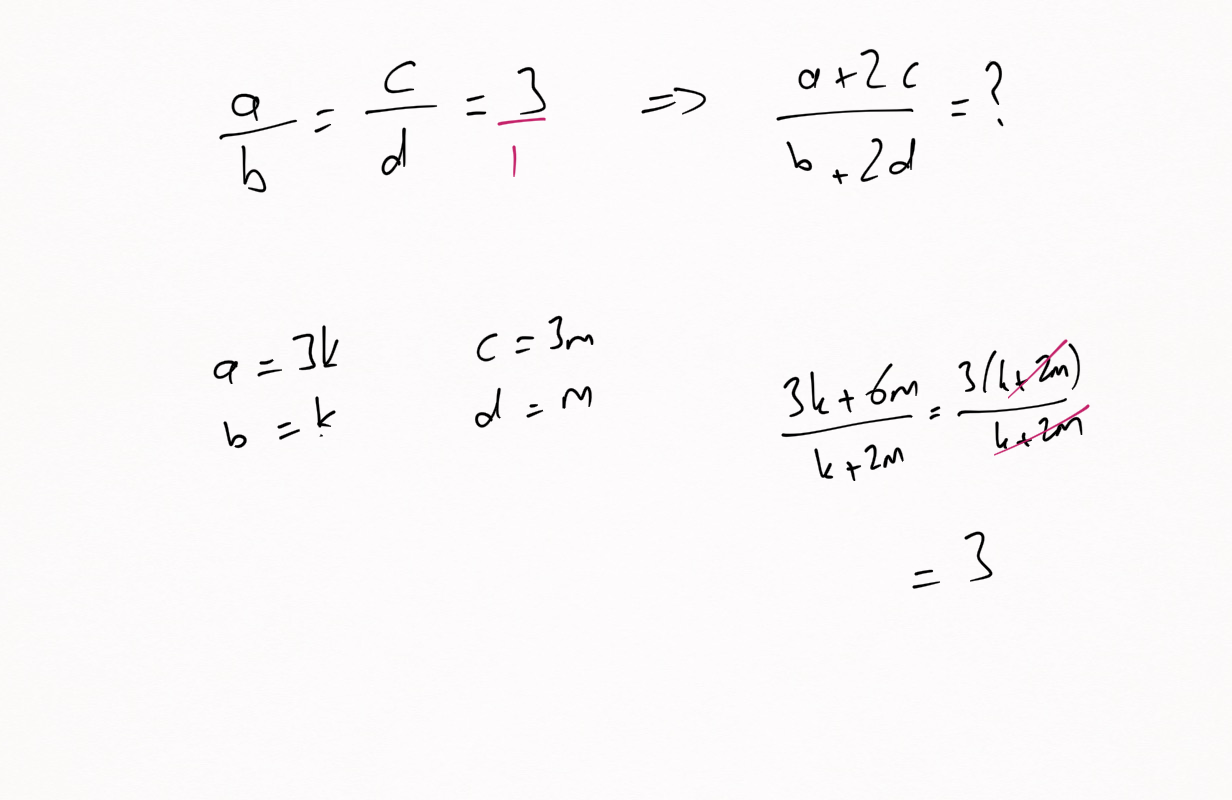 a/b = c/d = 3/1 => a+2c/b+2d = ?
a = 3k c = 3m
b = k d = m
3k+6m/k+2m = 3(k+2m)/k+2m
= 3